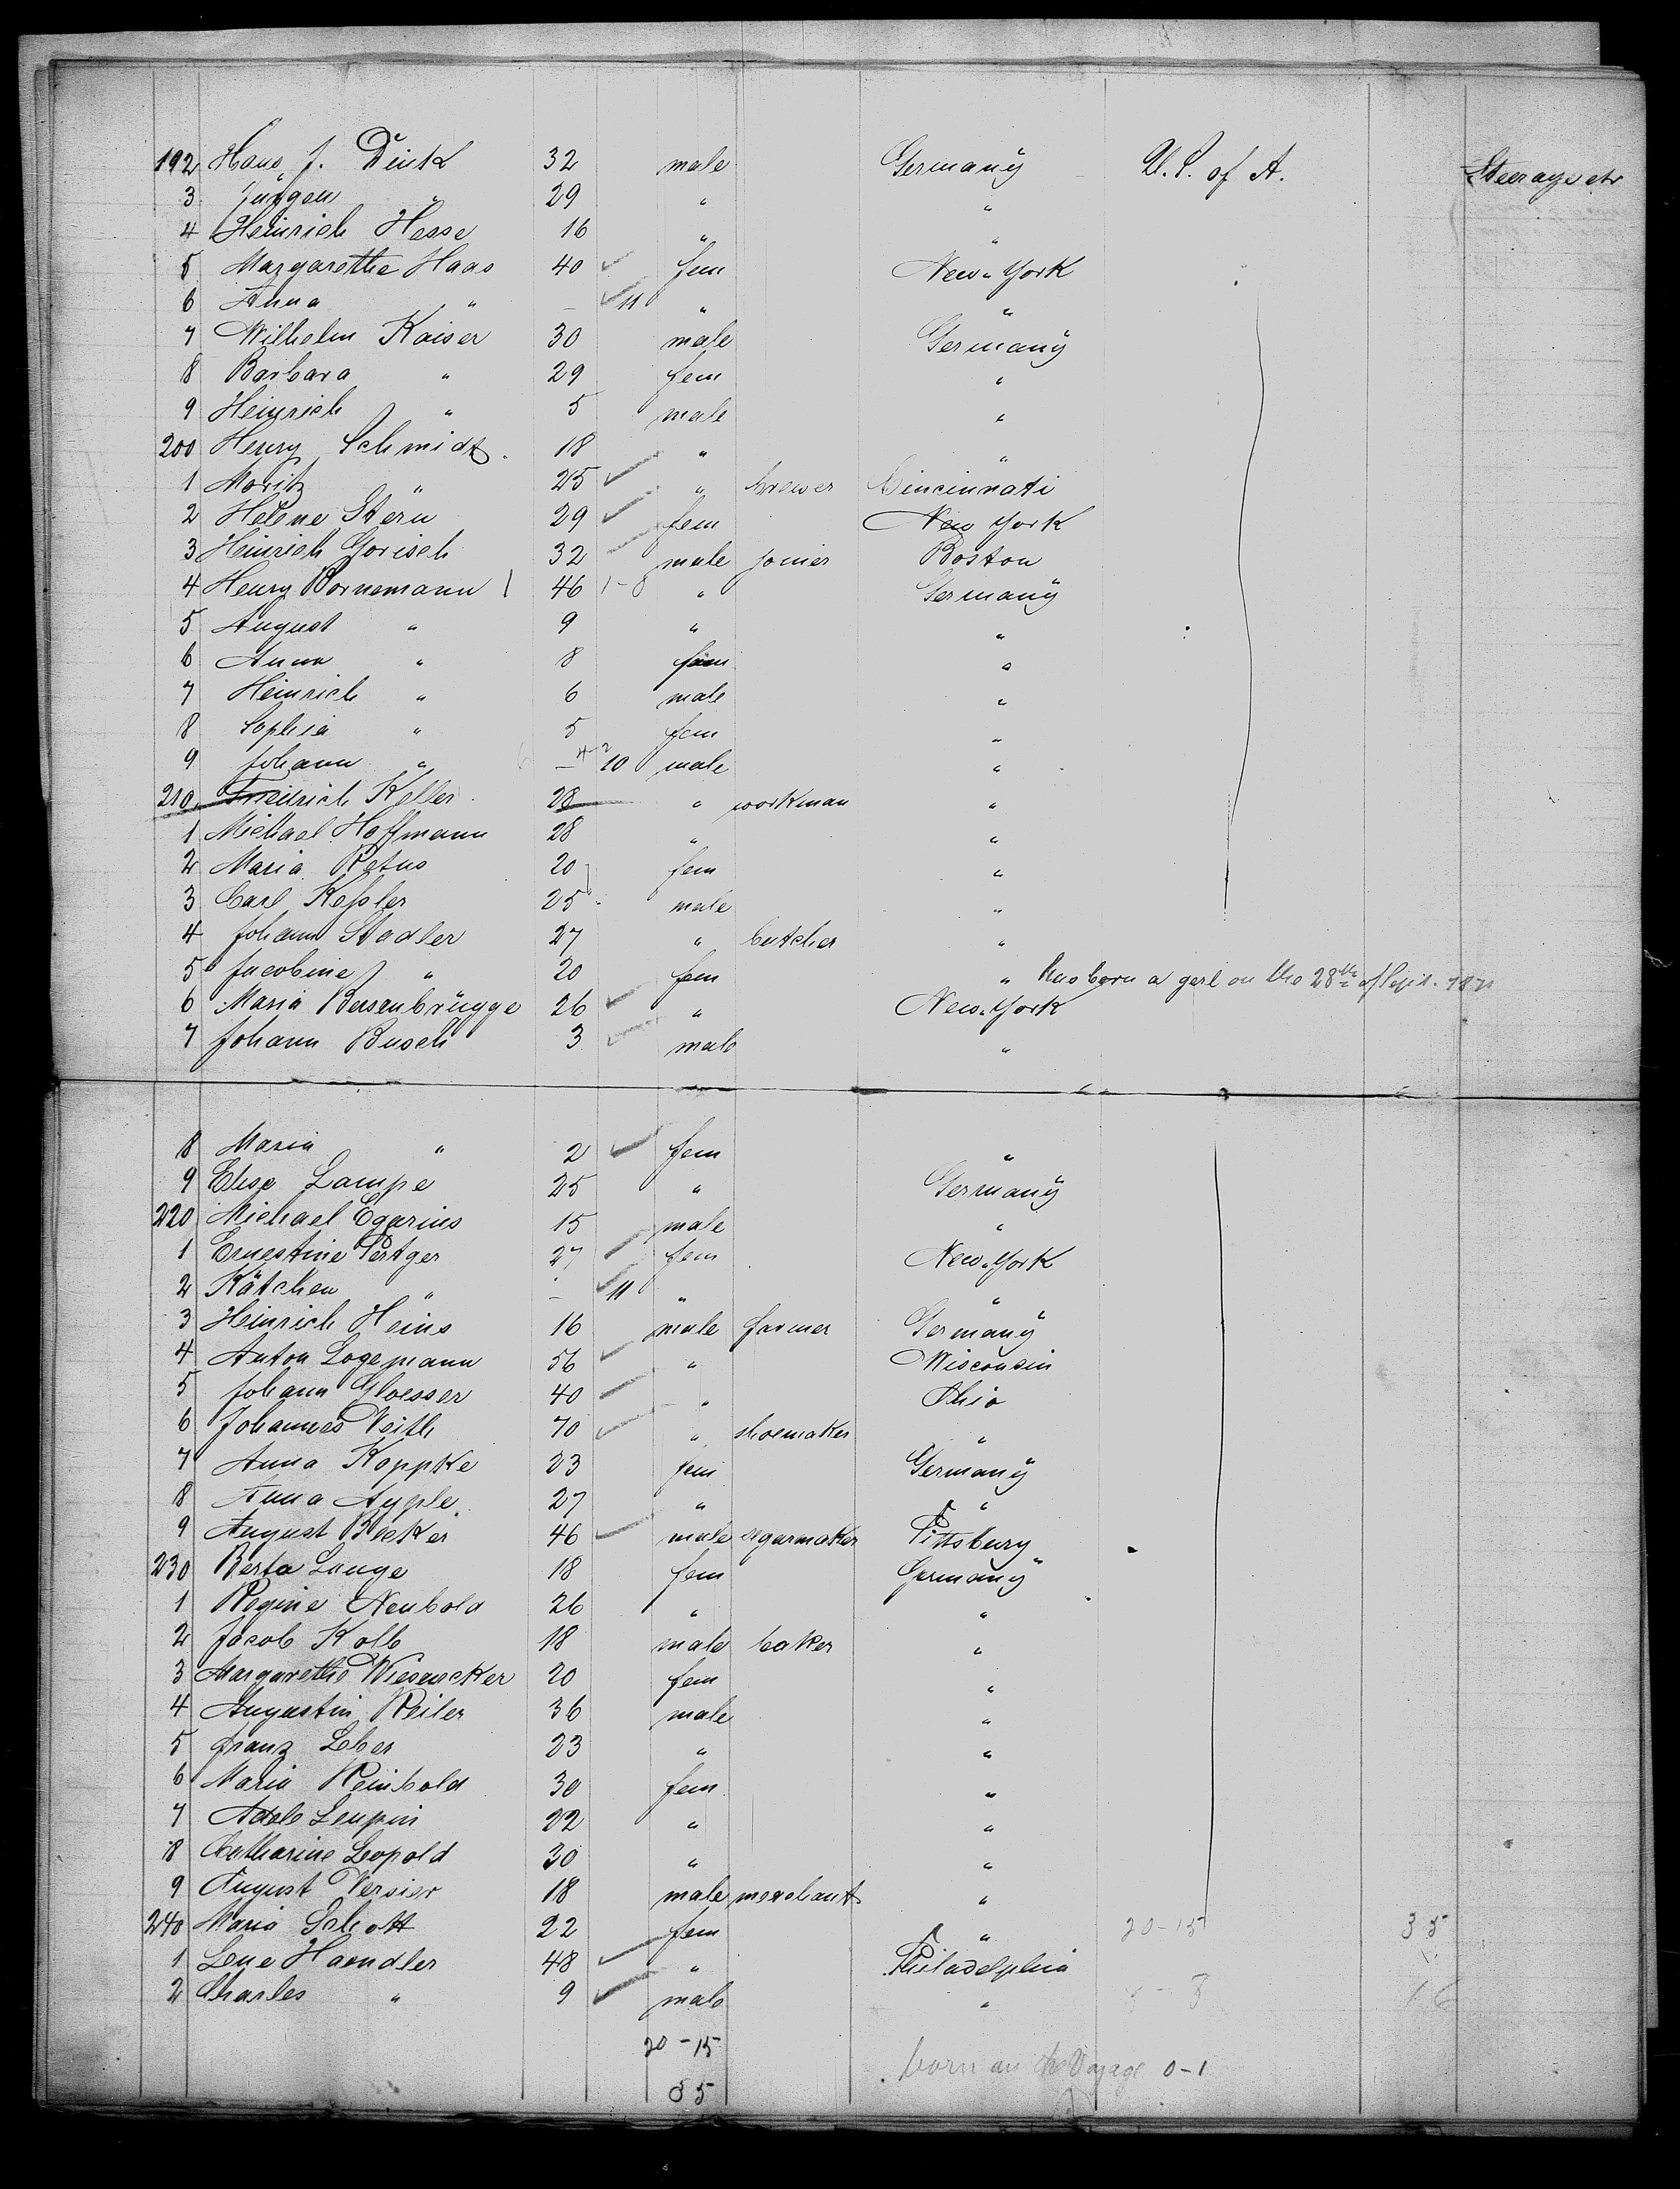 192 Hans J. Dink 32 male Germany U. S. of A. Steerage etc
3 Jürgen " 29 " "
4 Heinrich Hesse 16 " "
5 Margarethe Haas 40 fem New-York
6 Anna " — 11 " "
7 Wilhelm Kaiser 30 male Germany
8 Barbara " 29 fem "
9 Heinrich " 5 male "
200 Henry Schmidt 18 " "
1 Moritz " 25 " brewer Cincinnati
2 Helene Stern 29 fem New York
3 Heinrich Gorisch 32 male joiner Boston
4 Henry Bornemann 46 " Germany
5 August " 9 " "
6 Anna " 8 fem "
7 Heinrich " 6 male "
8 Sophia " 5 fem "
9 Johann " — 10 male "
210 Friedrich Keller 28 " workman "
1 Michael Hoffmann 28 " "
2 Maria Petus 20 fem "
3 Carl Keſsler 25 male "
4 Johann Stadler 27 " butcher "
5 Jacobine " 20 fem " has born a gerl on the 28th of Sept.
6 Maria Bersenbrügge 26 " New-York
7 Johann Busch 3 male "
8 Maria " 2 fem "
9 Elise Lampe 25 " Germany
220 Michael Egarius 15 male "
1 Ernestine Pertger 27 fem New-York
2 Kätchen " — 11 " "
3 Heinrich Heins 16 male farmer Germany
4 Anton Logemann 56 " Wisconsin
5 Johann Gloesser 40 " Ohio
6 Johannes Veith 70 " shoemaker "
7 Anna Koppke 23 fem Germany
8 Anna Ayple 27 " "
9 August Becker 46 male segarmaker Pittsburg
230 Berta Lange 18 fem Germany
1 Regine Neubold 26 " "
2 Jacob Kolb 18 male baker "
3 Margarethe Wiesnecker 20 fem "
4 Augustin Reiler 36 male "
5 Franz Leber 23 " "
6 Maria Reinbold 30 fem "
7 Adele Leupin 22 " "
8 Catharine Leopold 30 " "
9 August Versier 18 male merchant "
240 Maria Schott 22 fem " 20-15 35
1 Lene Haendler 48 " Philadelphia
2 Charles " 9 male " 16
20-15
born on the Voyage 0-1
35